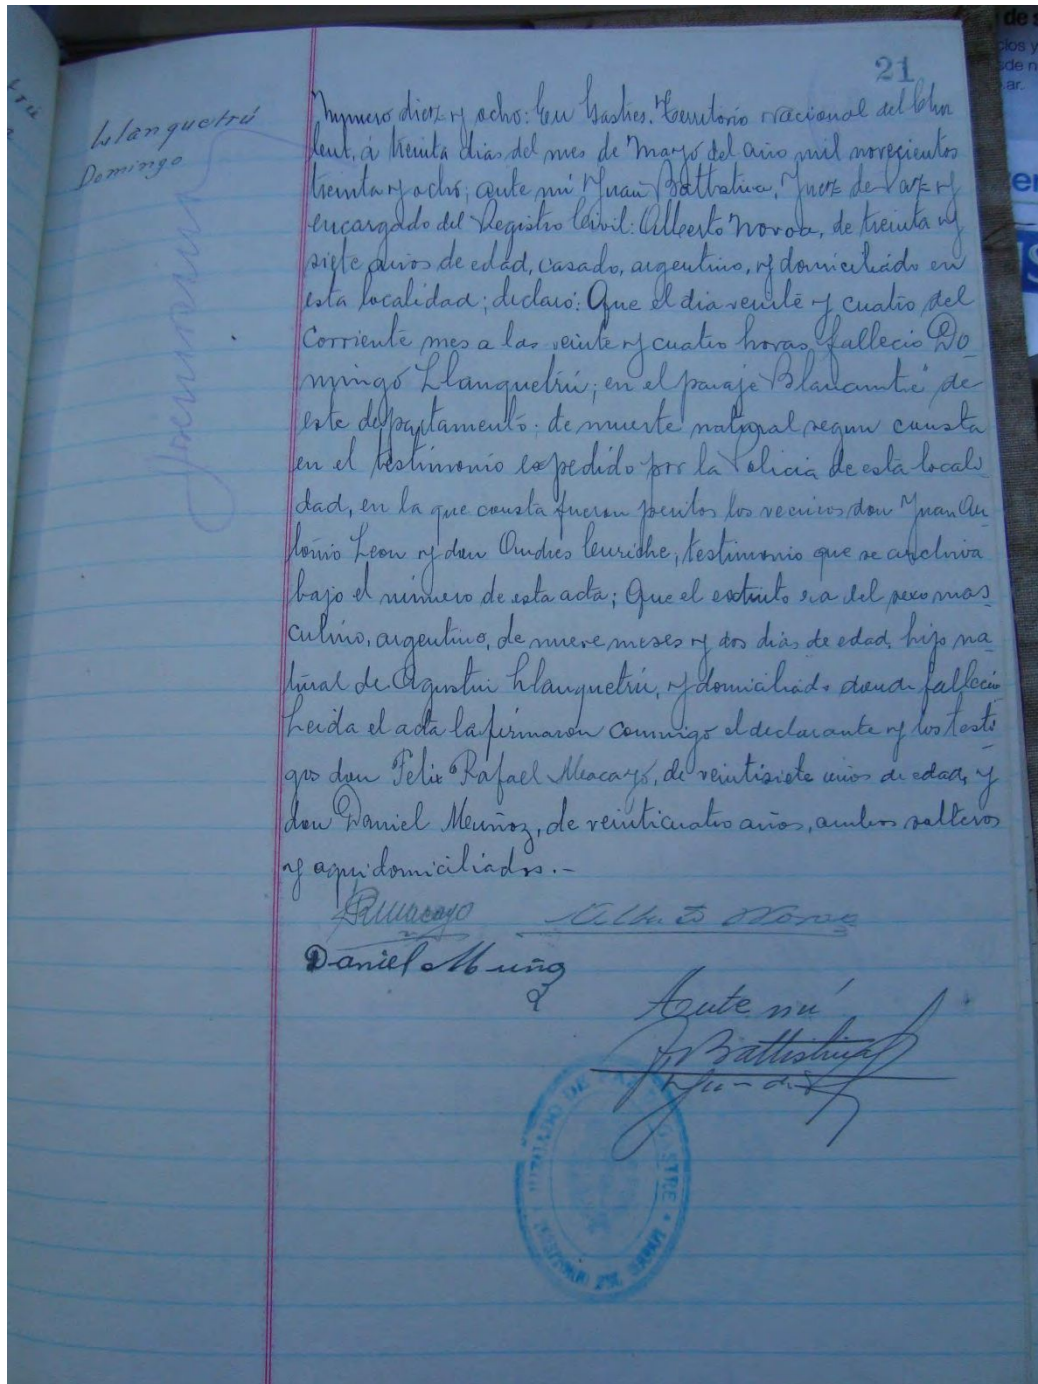 21
Llanquetrú
Domingo
Número diez y ocho: En Gastre, Territorio Nacional del Chu
but, á treinta dias del mes de Mayo del año mil novecientos
treinta y ocho; ante mí Juan Battistina, Juez de Paz y
encargado del Registro Civil: Alberto Novoa, de treinta y
siete años de edad, casado, argentino, y domiciliado en
esta localidad; declaró: Que el dia veinte y cuatro del
corriente mes a las veinte y cuatro horas, fallecio Do
mingo Llanquetrú; en el paraje de
este departamento; de muerte natural segun consta
en el testimonio expedido por la Policia de esta locali
dad, en la que consta fueron peritos los vecinos don Juan An
tonio Leon y don Andres Curiche, testimonio que se archiva
bajo el número de esta acta; Que el extinto era del sexo mas
culino, argentino, de nueve meses y dos dias de edad, hijo na
tural de Agustin Llanquetrú, y domiciliado donde fallecio
Leida el acta la firmaron conmigo el declarante y los testi
gos don Felix Rafael Macayo, de veintisiete años de edad, y
don Daniel Muñoz, de veinticuatro años, ambos solteros
y aqui domiciliados.-
Macayo Alberto Novoa
Daniel Muñoz
Ante mí
Battistina
JUZGADO DE PAZ GASTRE